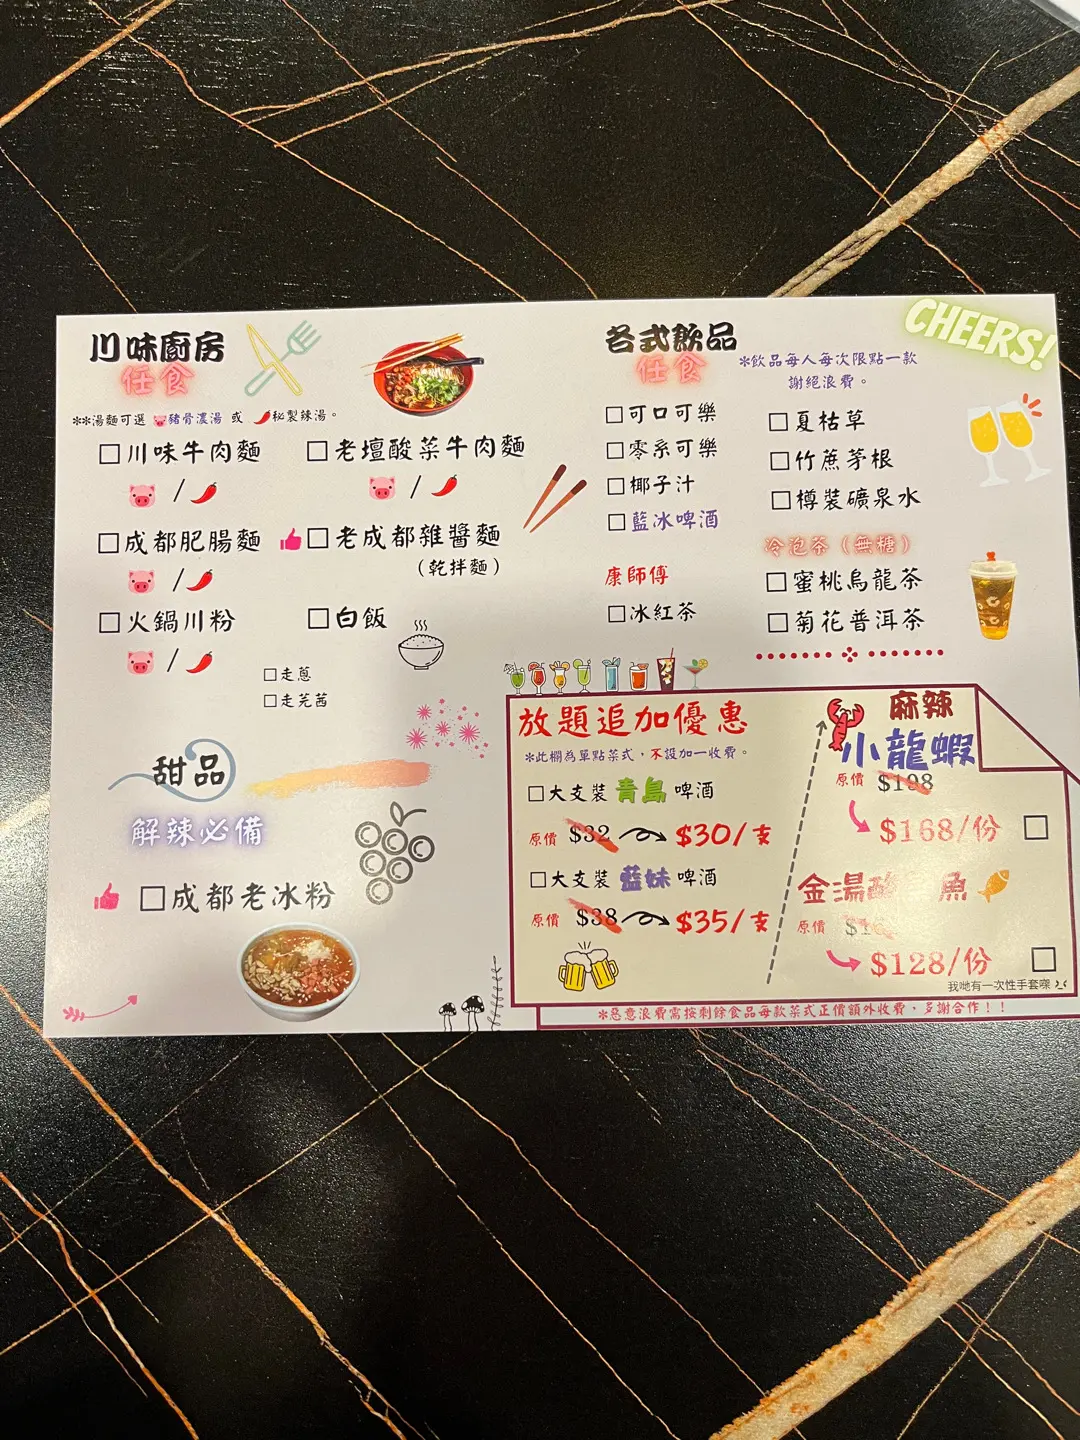 川味廚房
任食
**湯麵可選 豬骨濃湯 或 秘製辣湯。
□川味牛肉麵
□老壇酸菜牛肉麵
/
/
□成都肥腸麵
□老成都雜醬麵
(乾拌麵)
/
□火鍋川粉
□白飯
/
□走蔥
□走芫茜
甜品
解辣必備
□成都老冰粉
CHEERS!
各式飲品
任食
*飲品每人每次限點一款
謝絕浪費。
□可口可樂
□零系可樂
□椰子汁
□藍冰啤酒
康師傅
□冰紅茶
□夏枯草
□竹蔗茅根
□樽裝礦泉水
冷泡茶(無糖)
□蜜桃烏龍茶
□菊花普洱茶
放題追加優惠
*此欄為單點菜式,不設加一收費。
□大支裝 青島 啤酒
原價 $32 $30/支
□大支裝 藍妹 啤酒
原價 $38 $35/支
麻辣
小龍蝦
原價 $198
$168/份 □
金湯酸 魚
原價
$128/份 □
我哋有一次性手套㗎
*惡意浪費需按剩餘食品每款菜式正價額外收費,多謝合作!!